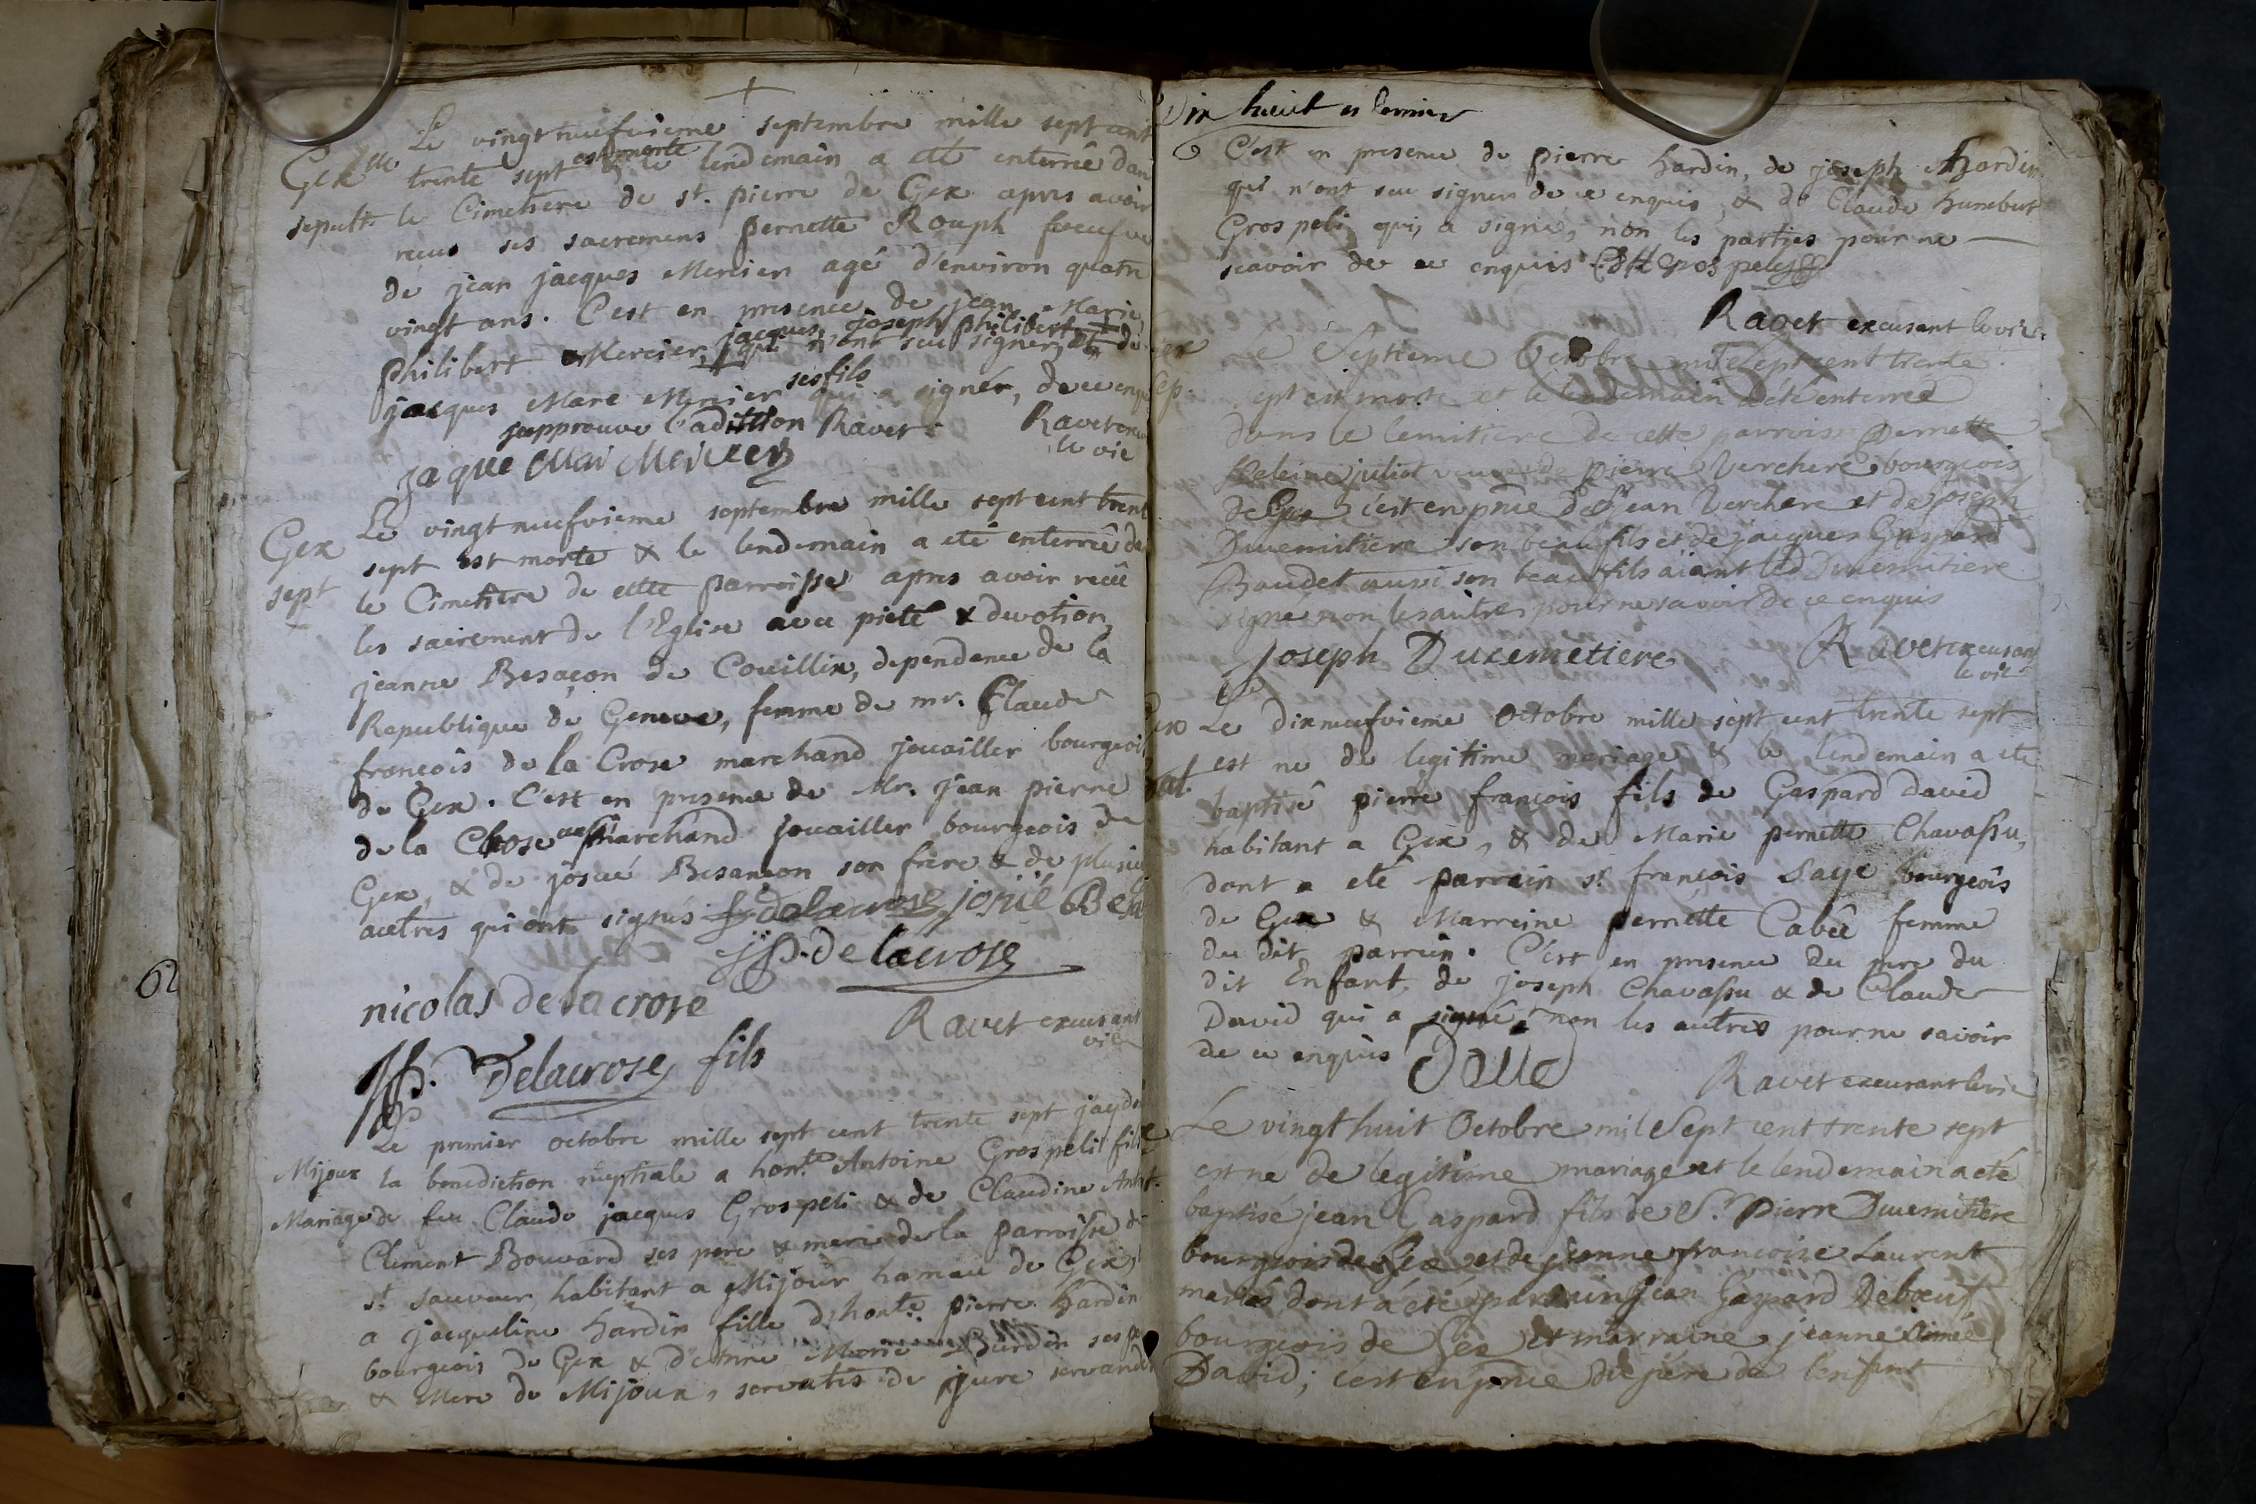 Le vingt neufvieme septembre mille sept cent
Gex trente sept est morte & le lendemain a eté enterrée dan
sepult. le Cimetiere de st. pierre de Gex apres avoir
receu ses sacremens pernette Rouph
de jean jacques Mercier agé d'environ quatre
vingt ans. C'est en presence de jean Marie,
jacques, joseph philibert
philibert Mercier, qui n'ont sceu signer, et de
ses fils
jacques Marc Mercier qui a signér, de ce enqu
japprouve l'adittion Ravet. Ravet
le vic
jaque Mar Mercier
Gex Le vingt neufvieme septembre mille sept cent trent
sept est morte & le lendemain a eté enterrée de
sept le Cimetiere de cette parroisse apres avoir receu
les sacrement de l'Eglise avec pieté & devotion
jeanne Besaçon de Couillin, dependence de la
Republique de Geneve, femme de mr. Claude
françois de la Crose marchand jouailler bourgeois
de Gex. C'est en presence de Mr. jean pierre
de la Crose aussi marchand jouailler bourgeois de
Gex, & de josué Besançon son frere & de plusieu
autres qui ont signés delacrose josué Besa
jp. delacrose
62
nicolas delacrose
Ravet excusant
vic
JP. Delacrose fils
Le premier octobre mille sept cent trente sept jay d
Mijoux la benediction nuptiale a hon.te Antoine Grospelit fils
Mariage de feu Claude jacques Grospeli & de Claudine Ant
Clement Bouvard ses pere & mere de la parroisse d
st. sauveur habitant a Mijoux hamau de Gex,
a jacqueline hardin fille d'honte. pierre hardin
bourgeois de Gex & d'anne Marie Burdin ses p
& Mere de Mijoux, servatis de jure servand
Dix huict et dernier
C'est en presence de pierre hardin, de joseph hardin
qui n'ont sceu signer de ce enquis, & de Claude humbert
Grospeli qui, a signé, non les parties pour ne
scavoir de ce enquis Grospely
Ravet excusant le vic.
Le Septieme Octobre mil sept cent trente
sep. sept est morte et le lendemain a été enterrée
dans le cemitiere de cette parroisse Pernette
heleine juliot veuve de Pierre Verchere bourgeois
de Gex, c'est en pnce de Jean Verchere et de Joseph
Ducemitiere son beau fils et de jacques Gaspard
Baudet aussi son beau fils aiant led Ducemitiere
signé non les autres pour ne savoir de ce enquis
Joseph Ducemetiere Ravet excusant
le vic
Gex Le dixneufvieme octobre mille sept cent trente sept
est ne de legitime mariage & le lendemain a ete
bat. baptisé pierre françois fils de Gaspard David
habitant a Gex, & de Marie pernette Chavassu,
dont a eté parrain sr françois Saye bourgeois
de Gex & Marreine pernette Cabû femme
du dit parrein. C'est en presence du pere du
dit Enfant, de joseph Chavassu & de Claude
David qui a signé, non les autres pour ne savoir
de ce enquis David
Ravet excusant le vic
Le vingt huit Octobre mil sept cent trente sept
est né de legitime mariage et le lendemain a eté
baptisé jean Gaspard fils de Sr. Pierre Ducemitiere
bourgeois de Gex et de jeanne françoise Laurent
mariés dont a eté parrain jean Gaspard Debœuf
bourgeois de Gex et marraine jeanne Aimée
David; c'est en pnce du pere de l'enfant